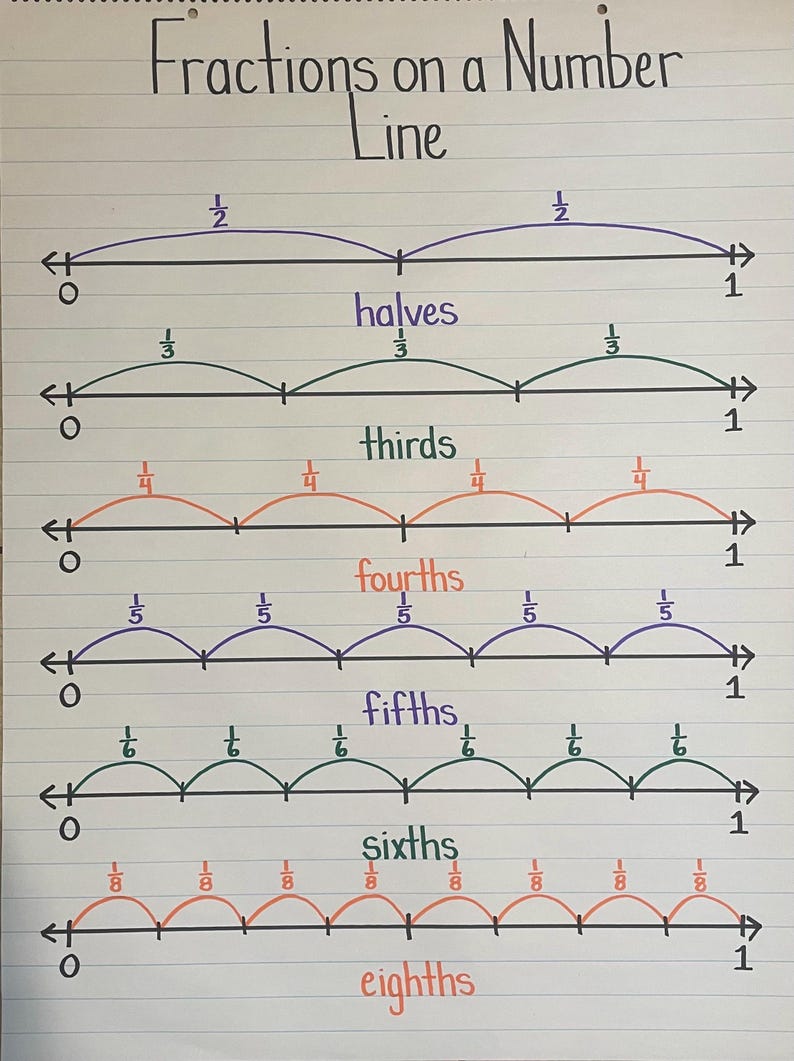 Fractions on a Number
Line
1/2 1/2
0 1
halves
1/3 1/3 1/3
0 1
thirds
1/4 1/4 1/4 1/4
0 1
fourths
1/5 1/5 1/5 1/5 1/5
0 1
fifths
1/6 1/6 1/6 1/6 1/6 1/6
0 1
sixths
1/8 1/8 1/8 1/8 1/8 1/8 1/8 1/8
0 1
eighths